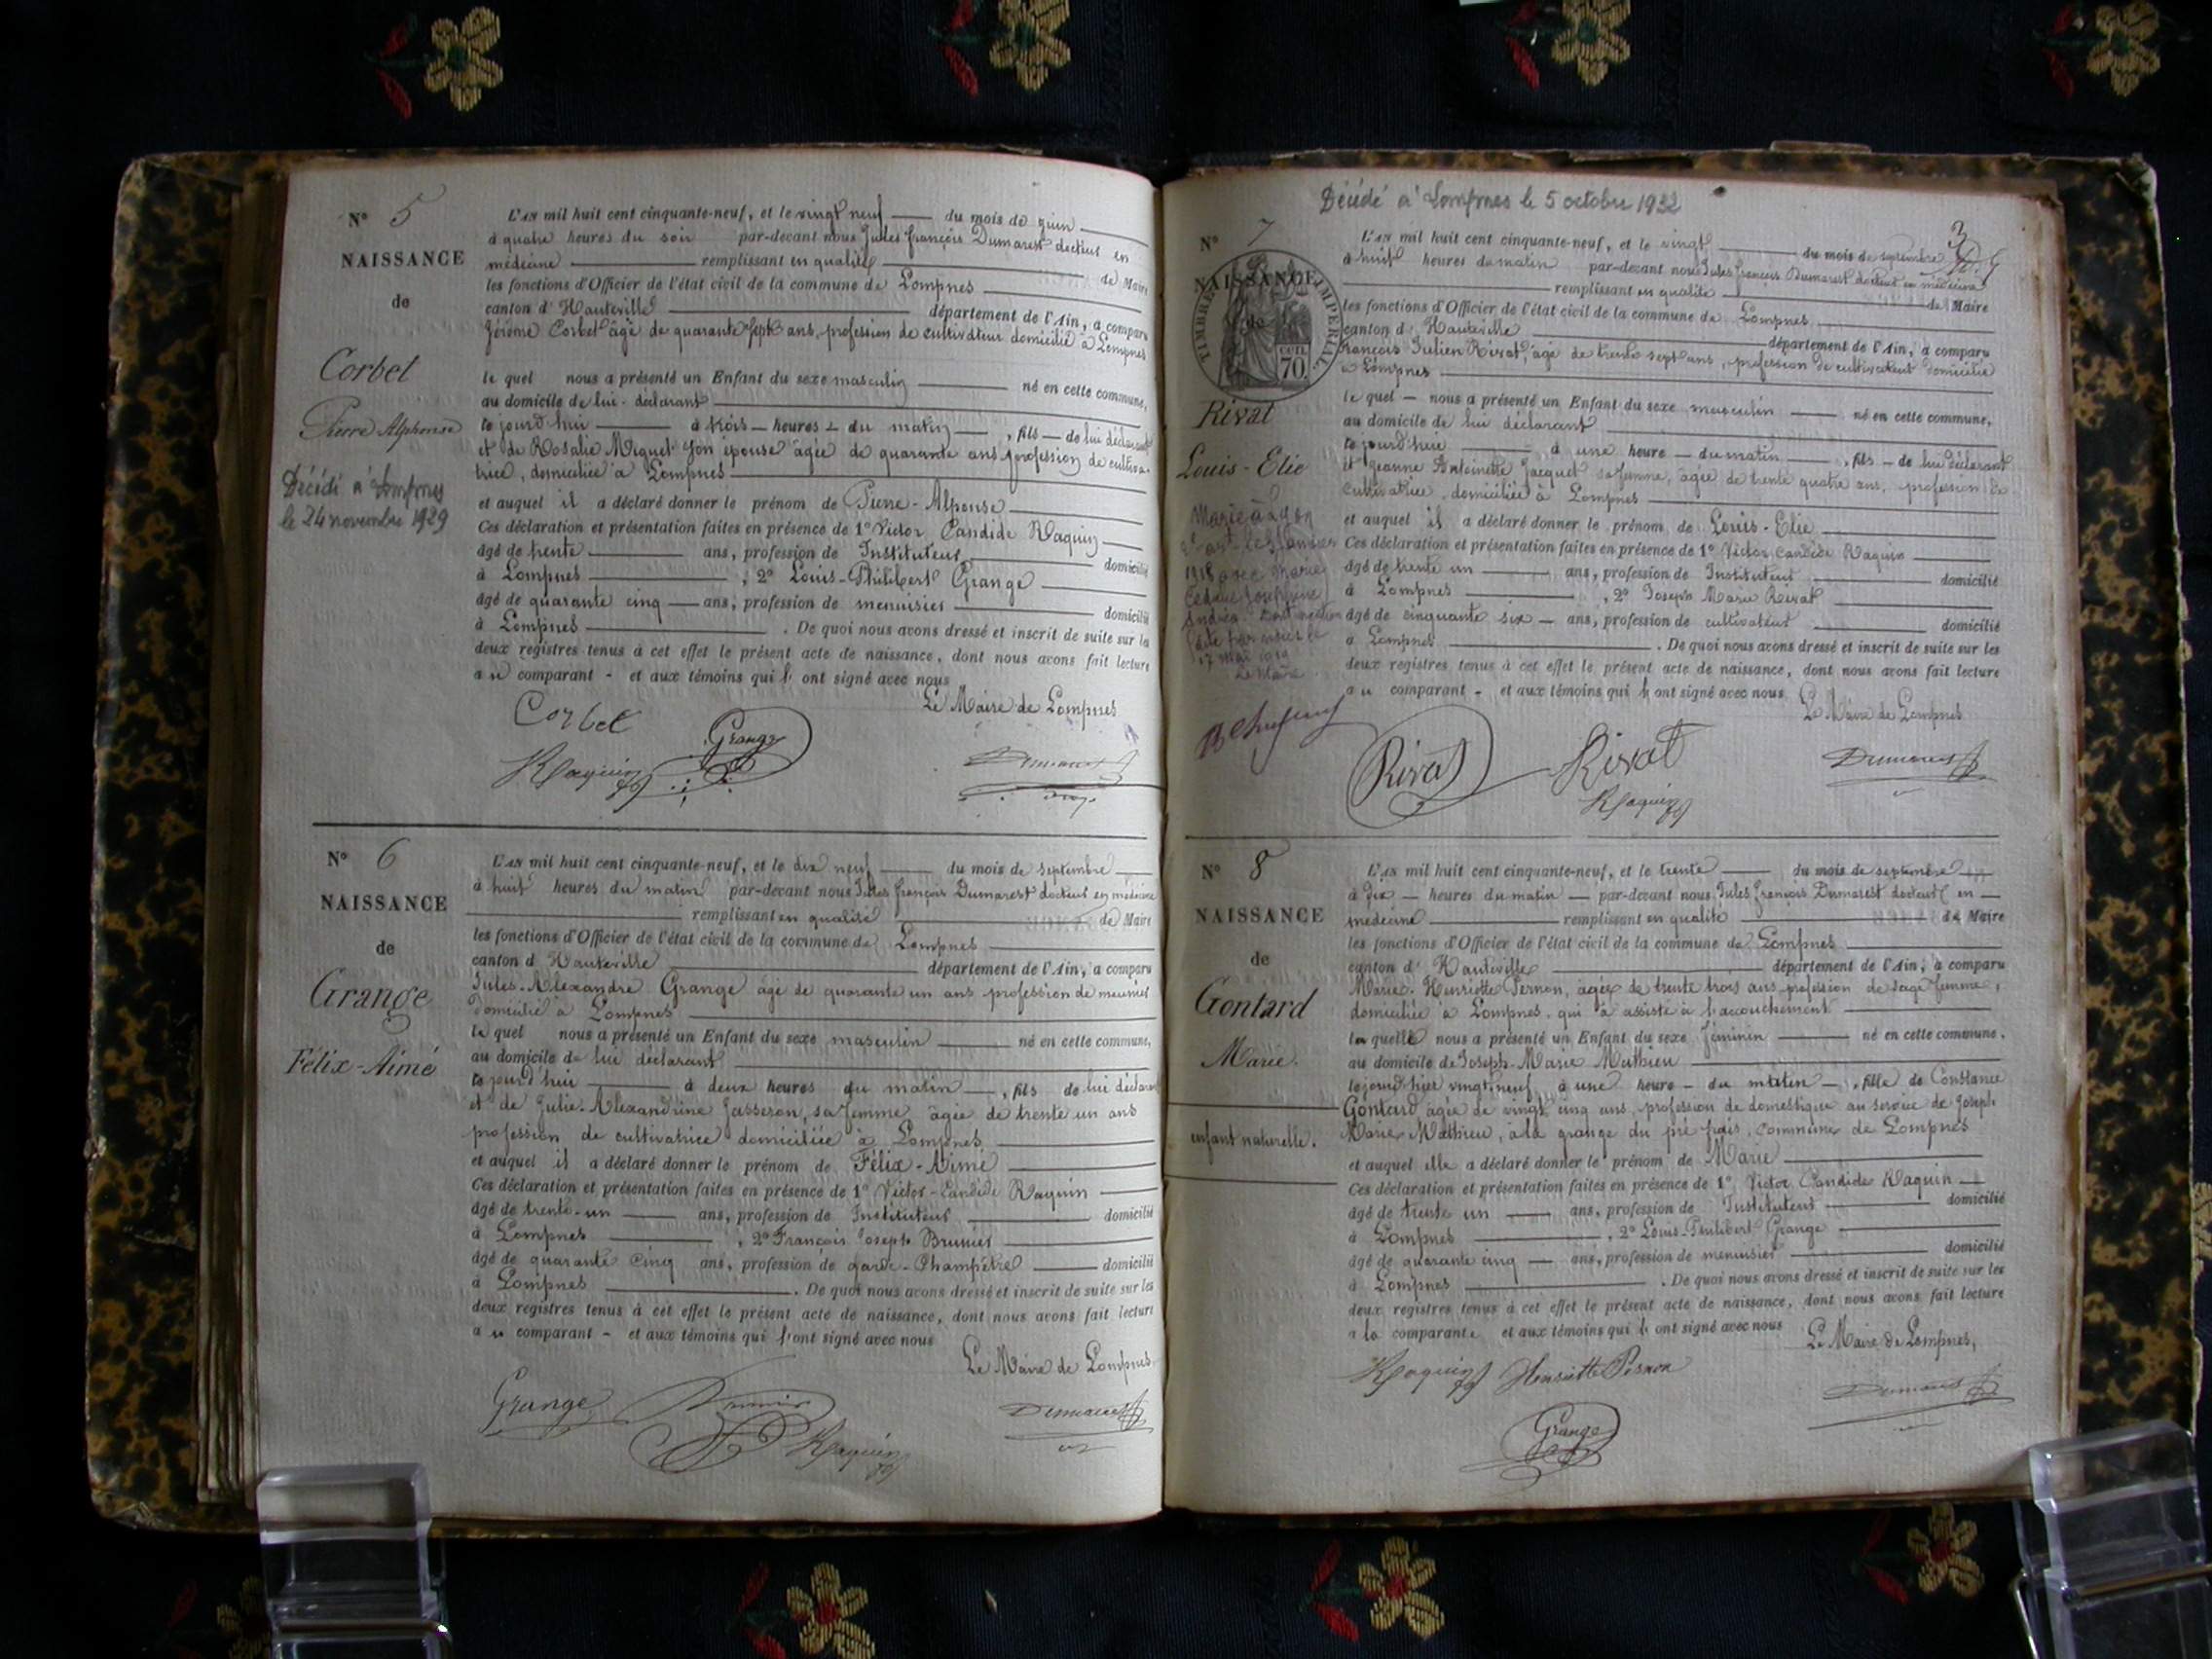 N° 5
NAISSANCE
de
Corbet
Pierre Alphonse
Décédé à Lompnes
le 24 novembre 1929
L'an mil huit cent cinquante-neuf, et le vingt neuf du mois de juin
à quatre heures du soir par-devant nous Jules françois Dumarest docteur en
médecine remplissant en qualité de Maire
les fonctions d'Officier de l'état civil de la commune de Lompnes
canton d'Hauteville département de l'Ain, a comparu
Jérôme Corbet âgé de quarante sept ans, profession de cultivateur domicilié à Lompnes
le quel nous a présenté un Enfant du sexe masculin né en cette commune,
au domicile de lui déclarant
cejourd'hui à trois heures du matin, fils de lui déclarant
et de Rosalie Miguet son épouse âgée de quarante ans profession de cultiva-
trice, domiciliée à Lompnes
et auquel il a déclaré donner le prénom de Pierre-Alponse
Ces déclaration et présentation faites en présence de 1° Victor Candide Raquin
âgé de trente ans, profession de Instituteur domicilié
à Lompnes, 2° Louis-Philibert Grange
âgé de quarante cinq ans, profession de menuisier domicilié
à Lompnes. De quoi nous avons dressé et inscrit de suite sur les
deux registres tenus à cet effet le présent acte de naissance, dont nous avons fait lecture
au comparant - et aux témoins qui l' ont signé avec nous
Le Maire de Lompnes
Corbet
Grange
Raquin
Dumarest
N° 6
NAISSANCE
de
Grange
Félix-Aimé
L'an mil huit cent cinquante-neuf, et le dix neuf du mois de septembre
à huit heures du matin par-devant nous Jules françois Dumarest docteur en médecine
remplissant en qualité de Maire
les fonctions d'Officier de l'état civil de la commune de Lompnes
canton d'Hauteville département de l'Ain, a comparu
Jules-Alexandre Grange âgé de quarante un ans profession de meunier
domicilié à Lompnes
le quel nous a présenté un Enfant du sexe masculin né en cette commune,
au domicile de lui déclarant
cejourd'hui à deux heures du matin, fils de lui déclarant
et de Julie-Alexandrine Jasseron, sa femme âgée de trente un ans
profession de cultivatrice domiciliée à Lompnes
et auquel il a déclaré donner le prénom de Félix-Aimé
Ces déclaration et présentation faites en présence de 1° Victor-Candide Raquin
âgé de trente-un ans, profession de Instituteur domicilié
à Lompnes, 2° François Joseph Brunier
âgé de quarante cinq ans, profession de garde-Champêtre domicilié
à Lompnes. De quoi nous avons dressé et inscrit de suite sur les
deux registres tenus à cet effet le présent acte de naissance, dont nous avons fait lecture
au comparant - et aux témoins qui l'ont signé avec nous
Le Maire de Lompnes
Grange
Raquin
Dumarest
Décédé à Lompnes le 5 octobre 1932
3
N° 7
NAISSANCE
de
TIMBRE IMPERIAL
70
Rivat
Louis-Elie
Marie
1918 avec Marie
Joséphine
17 mai 1919
Le Maire
L'an mil huit cent cinquante-neuf, et le vingt du mois de septembre
à huit heures du matin par-devant nous Jules françois Dumarest docteur en médecine
remplissant en qualité de Maire
les fonctions d'Officier de l'état civil de la commune de Lompnes
canton d'Hauteville département de l'Ain, a comparu
François Julien Rivat, âgé de trente sept ans, profession de cultivateur domicilié
à Lompnes
le quel nous a présenté un Enfant du sexe masculin né en cette commune,
au domicile de lui déclarant
cejourd'hui à une heure du matin, fils de lui déclarant
et Jeanne Antoinette Jacquet sa femme, âgée de trente quatre ans, profession de
cultivatrice, domiciliée à Lompnes
et auquel il a déclaré donner le prénom de Louis-Elie
Ces déclaration et présentation faites en présence de 1° Victor Candide Raquin
âgé de trente un ans, profession de Instituteur domicilié
à Lompnes, 2° Joseph Marie Rivat
âgé de cinquante six ans, profession de cultivateur domicilié
à Lompnes. De quoi nous avons dressé et inscrit de suite sur les
deux registres tenus à cet effet le présent acte de naissance, dont nous avons fait lecture
au comparant - et aux témoins qui l ont signé avec nous
Le Maire de Lompnes
Rivat
Rivat
Raquin
Dumarest
N° 8
NAISSANCE
de
Gontard
Marie.
enfant naturelle.
L'an mil huit cent cinquante-neuf, et le trente du mois de septembre
à dix heures du matin par-devant nous Jules françois Dumarest docteur en
médecine remplissant en qualité de Maire
les fonctions d'Officier de l'état civil de la commune de Lompnes
canton d'Hauteville département de l'Ain, a comparu
Marie-Henriette Pernon, âgée de trente trois ans profession de sage femme,
domiciliée à Lompnes, qui a assisté à l'accouchement
la quelle nous a présenté un Enfant du sexe féminin né en cette commune.
au domicile de Joseph-Marie Mathieu
cejourd'hier vingt neuf à une heure du matin, fille de Constance
Gontard âgée de vingt cinq ans, profession de domestique au service de Joseph
Marie Mathieu, à la grange du pré frais, commune de Lompnes
et auquel elle a déclaré donner le prénom de Marie
Ces déclaration et présentation faites en présence de 1° Victor Candide Raquin
âgé de trente un ans, profession de Instituteur domicilié
à Lompnes, 2° Louis-Philibert Grange
âgé de quarante cinq ans, profession de menuisier domicilié
à Lompnes. De quoi nous avons dressé et inscrit de suite sur les
deux registres tenus à cet effet le présent acte de naissance, dont nous avons fait lecture
a la comparante et aux témoins qui l ont signé avec nous
Le Maire de Lompnes,
Raquin Henriette Pernon
Dumarest
Grange